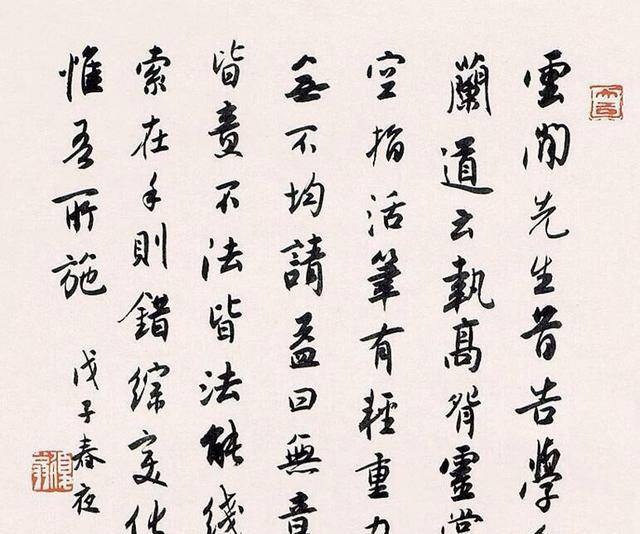 雲閒先生昔告學
蘭道云執高靈
空指活筆有輕重
無不均請益曰無
皆不法皆法能綫
索在手則錯綜变化
惟吾所施
戊子春夜